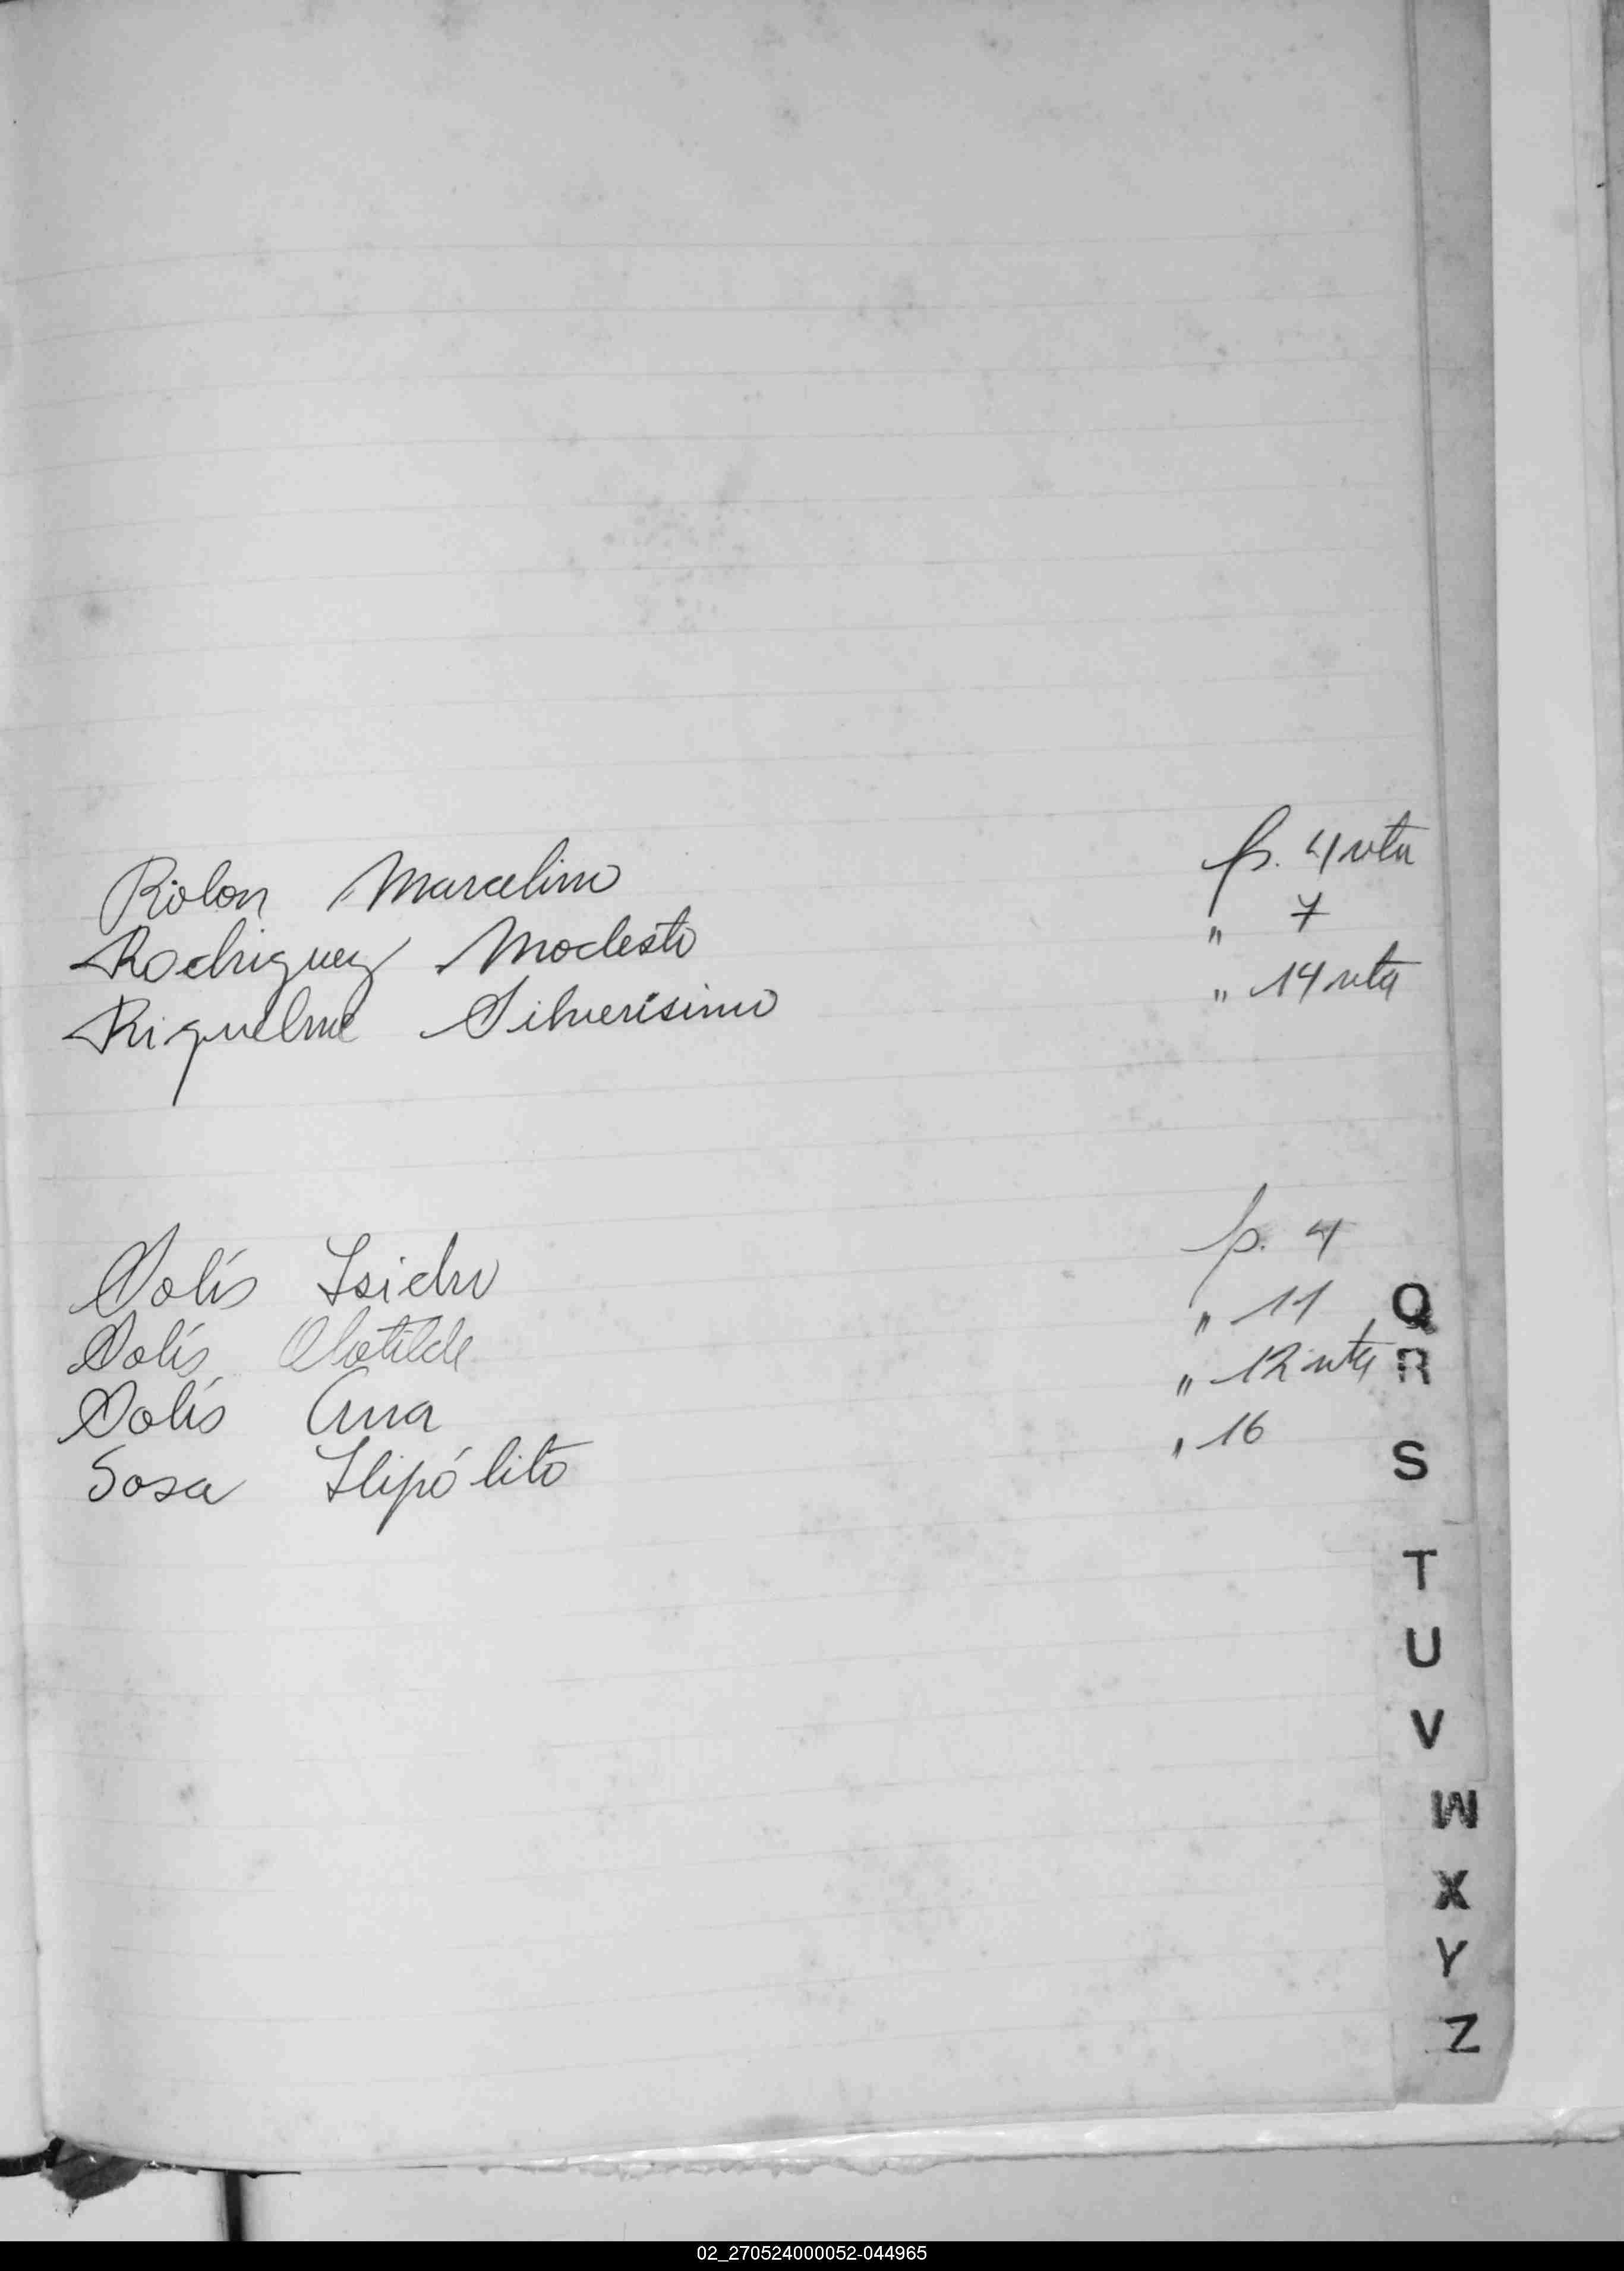 Rolon Marcelino p. 4 vta
Rodriguez Modesto " 7
Riquelme Silverisimo " 14 vta
Solís Isidro p. 4
Solís Clotilde " 11
Solís Ana " 12 vta
Sosa Hipólito " 16
Q
R
S
T
U
V
W
X
Y
Z
02_270524000052-044965